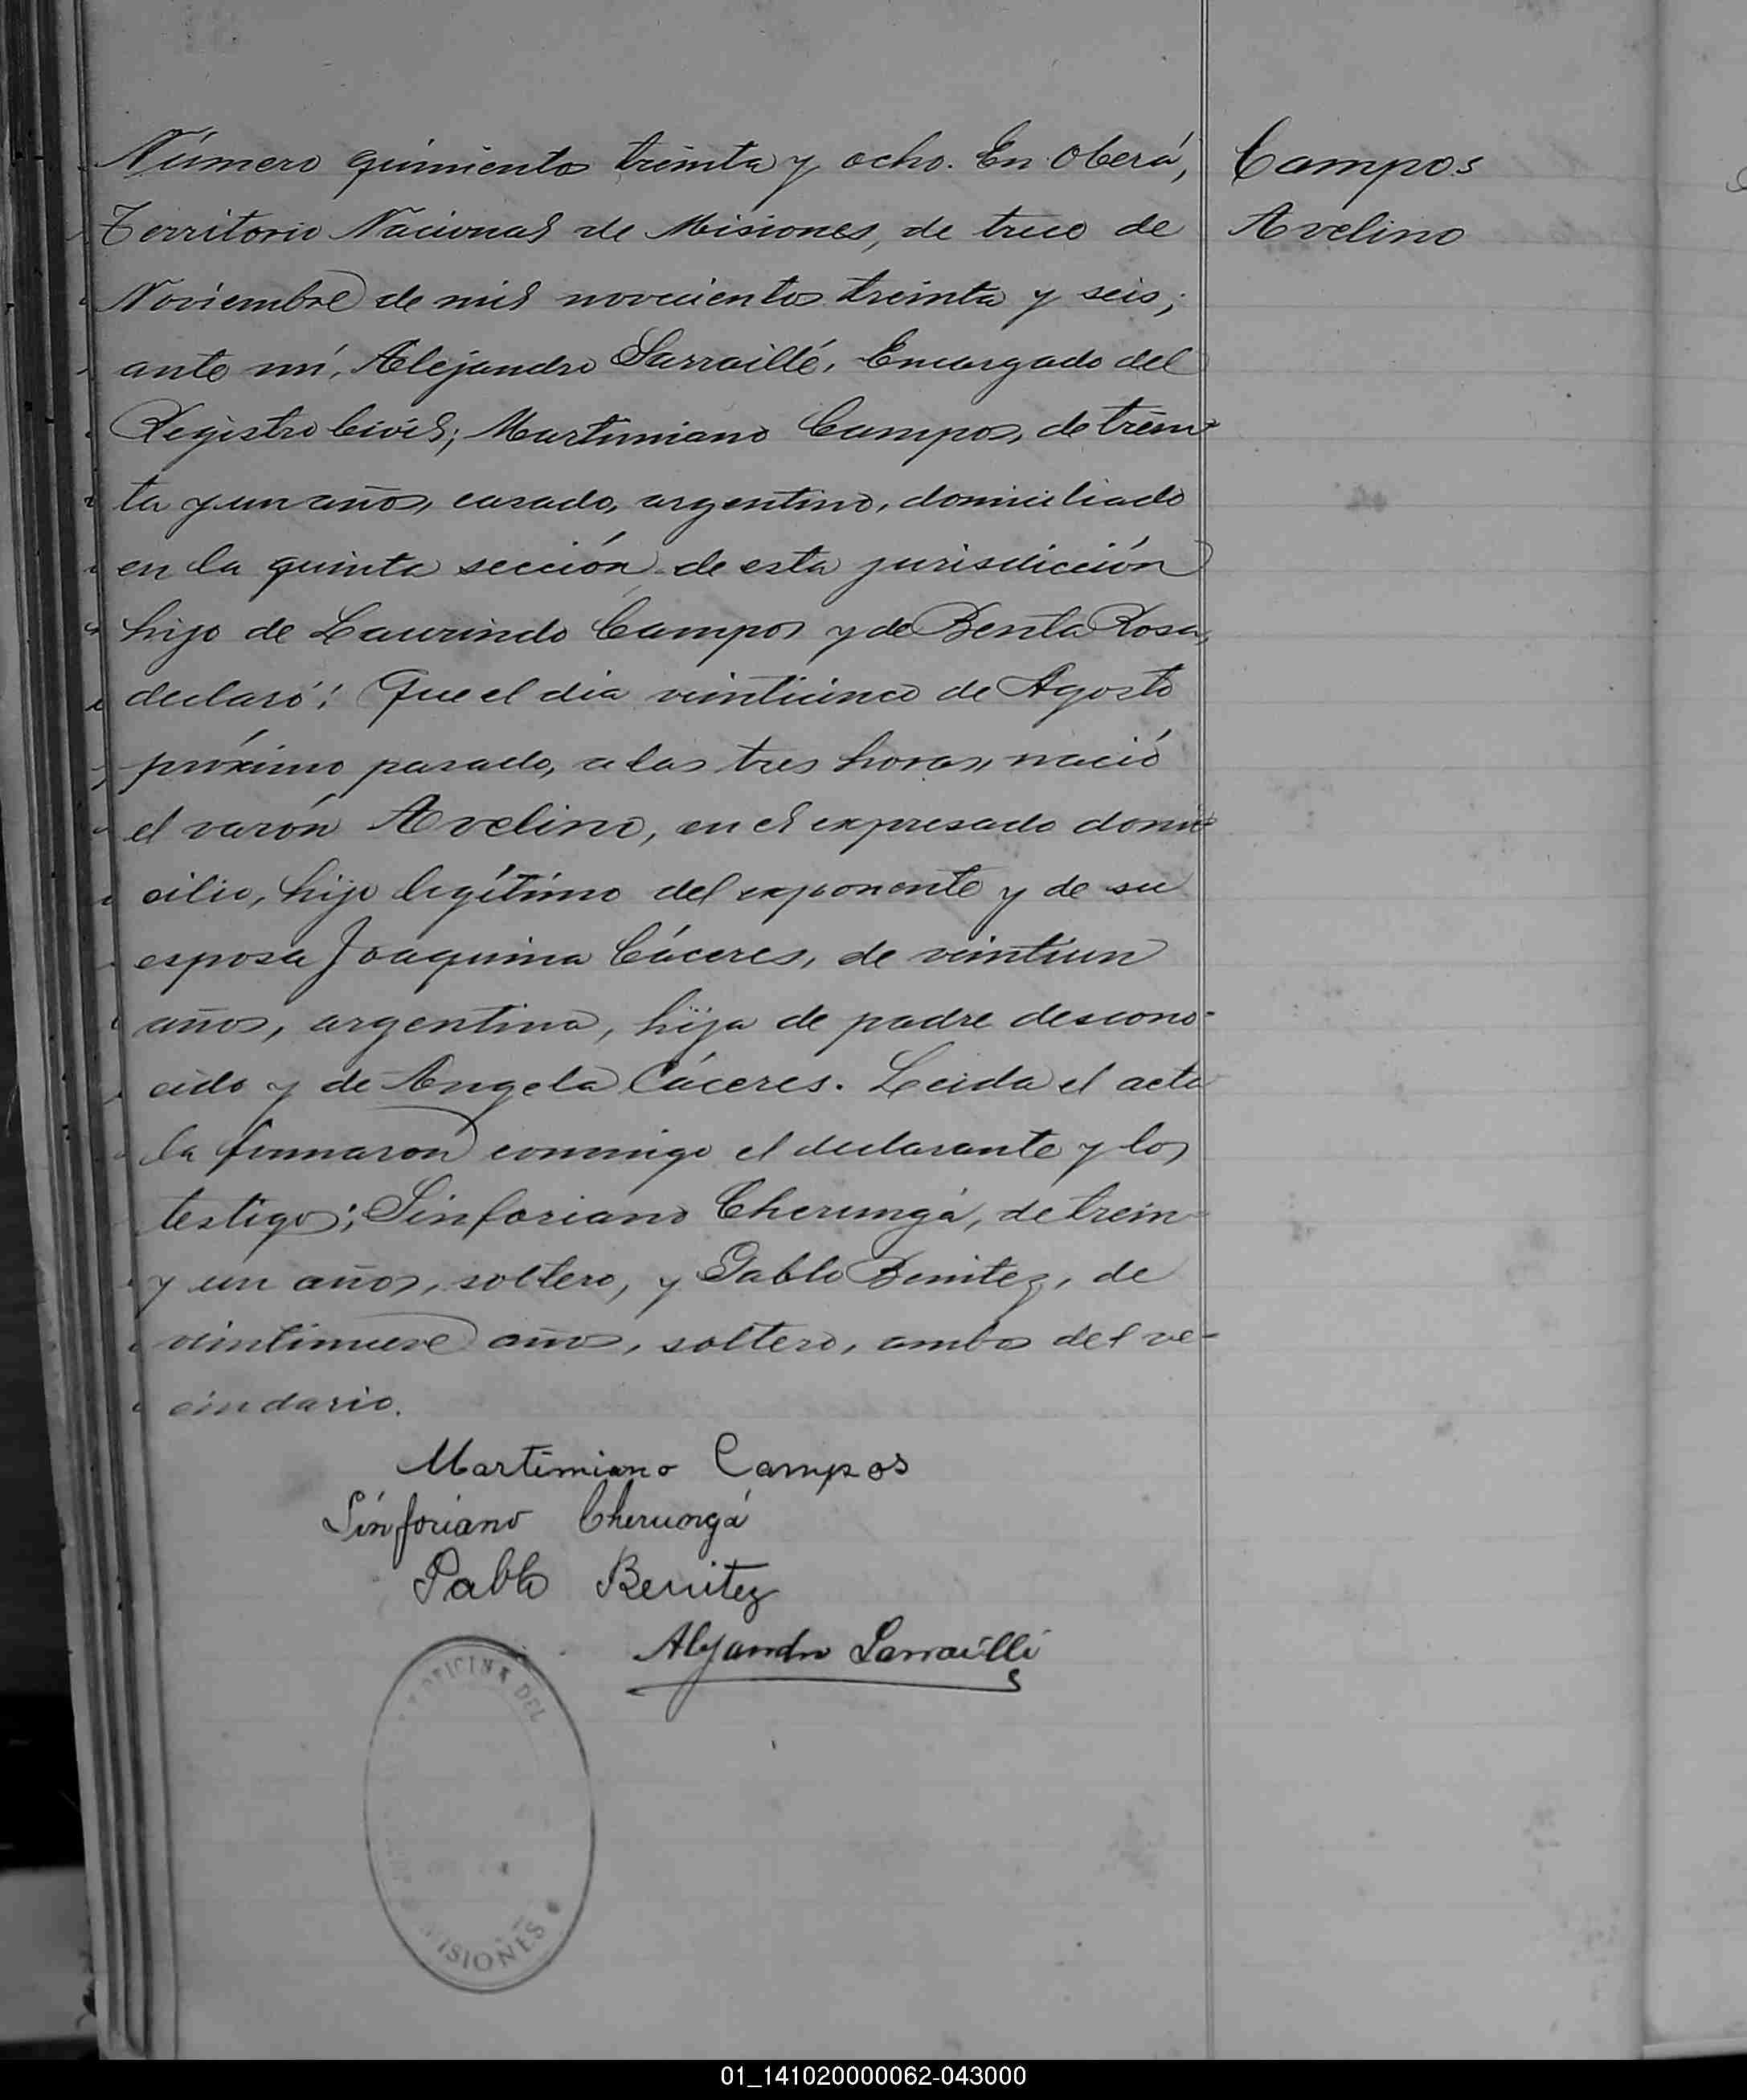 Número quiniento treinta y ocho. En Oberá,
Territorio Nacional de Misiones, de trece de
Noviembre de mil novecientos treinta y seis;
ante mí, Alejandro Sarraillé, Encargado del
Registro Civil; Martimiano Campos, de trein-
ta y un años, casado, argentino, domiciliado
en la quinta sección de esta jurisdicción
hijo de Laurindo Campos y de Benta Rosa,
declaró: Que el dia veinticinco de Agosto
próximo pasado, a las tres horas, nació
el varón Avelino, en el expresado domi-
cilio, hijo legítimo del exponente y de su
esposa Joaquina Cáceres, de veintiun
años, argentina, hija de padre descono-
cido y de Angela Cáceres. Leida el acta
la firmaron conmigo el declarante y los
testigos; Sinforiano Cherungá, de trein-
y un años, soltero, y Pablo Benitez, de
veintinueve años, soltero, ambos del ve-
cindario.
Campos
Avelino
Martimiano Campos
Sinforiano Cherungá
Pablo Benitez
Alejandro Sarraillé
OFICINA DEL
MISIONES
01_141020000062-043000